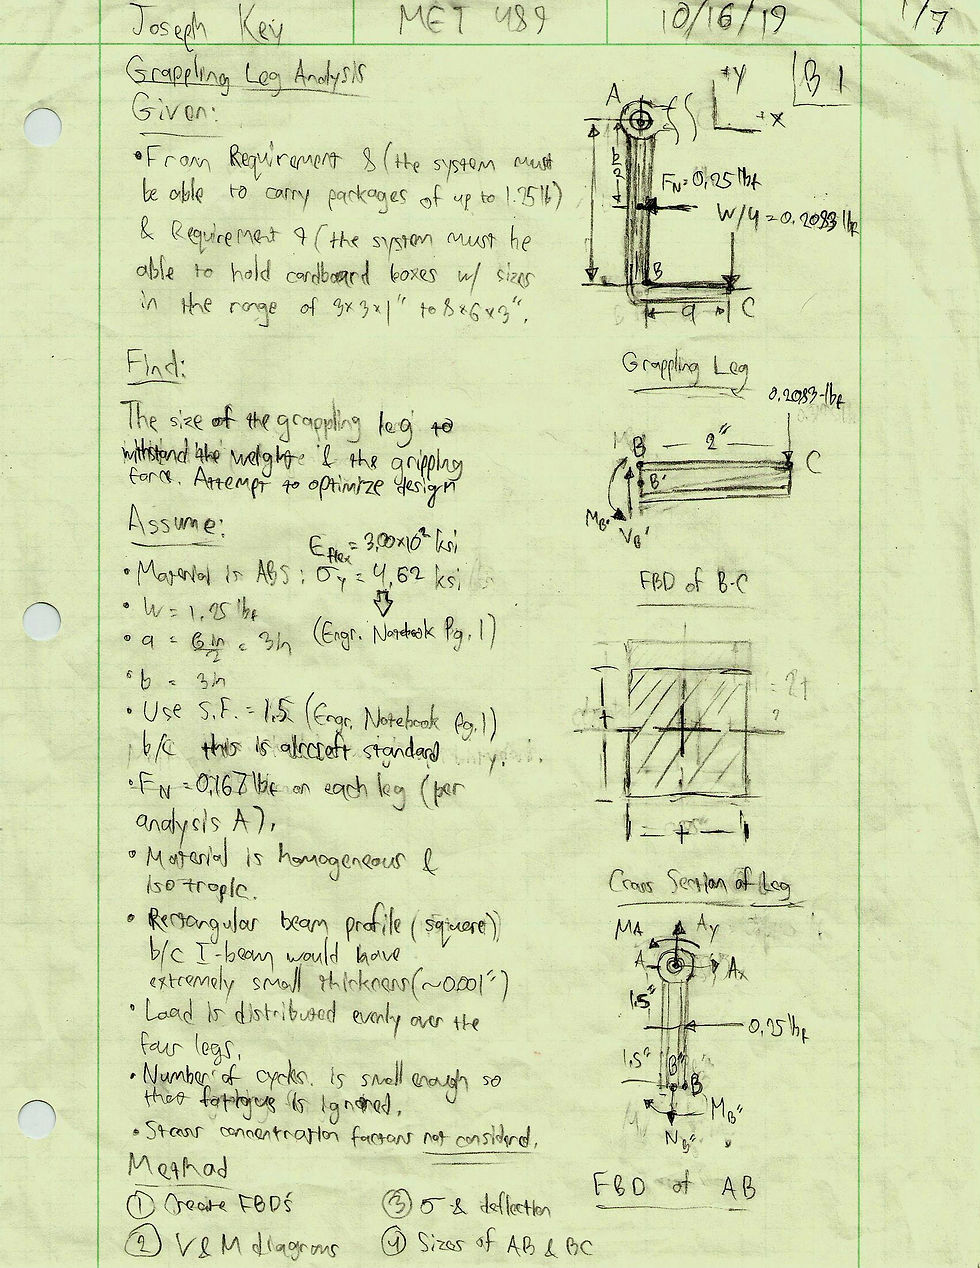 Joseph Key MET 489 10/16/19 1/7
Grappling Leg Analysis
B1
Given:
• From Requirement 8 (the system must
be able to carry packages of up to 1.25lb)
& Requirement 9 (the system must be
able to hold cardboard boxes w/ sizes
in the range of 3x3x1" to 8x6x3".
Find:
The size of the grappling leg to
withstand the weight & the gripping
force. Attempt to optimize design
Assume:
E flex = 3.00x10² ksi
• Material is ABS: σy = 4.62 ksi
• W = 1.25 lbf
(Engr. Notebook Pg. 1)
• a = 6in/2 = 3in
• b = 3in
• Use S.F. = 1.5 (Engr. Notebook Pg. 1)
b/c this is aircraft standard
• FN = 0.167 lbf on each leg (per
analysis A).
• Material is homogeneous &
isotropic.
• Rectangular beam profile (square)
b/c I-beam would have
extremely small thickness (~0.001")
• Load is distributed evenly over the
four legs.
• Number of cycles is small enough so
that fatigue is ignored.
• Stress concentration factors not considered.
Method
① Create FBD's
② V & M diagrams
③ σ & deflection
④ Sizes of AB & BC
+Y
+X
A
b/2
FN = 0.25 lbf
W/4 = 0.2083 lbf
B
a
C
Grappling Leg
0.2083 lbf
B 2" C
B'
MB' VB'
FBD of B-C
= 2t
t
t
Cross Section of Leg
MA Ay
A Ax
1.5"
0.25 lbf
1.5"
B" B
MB"
NB"
FBD of AB